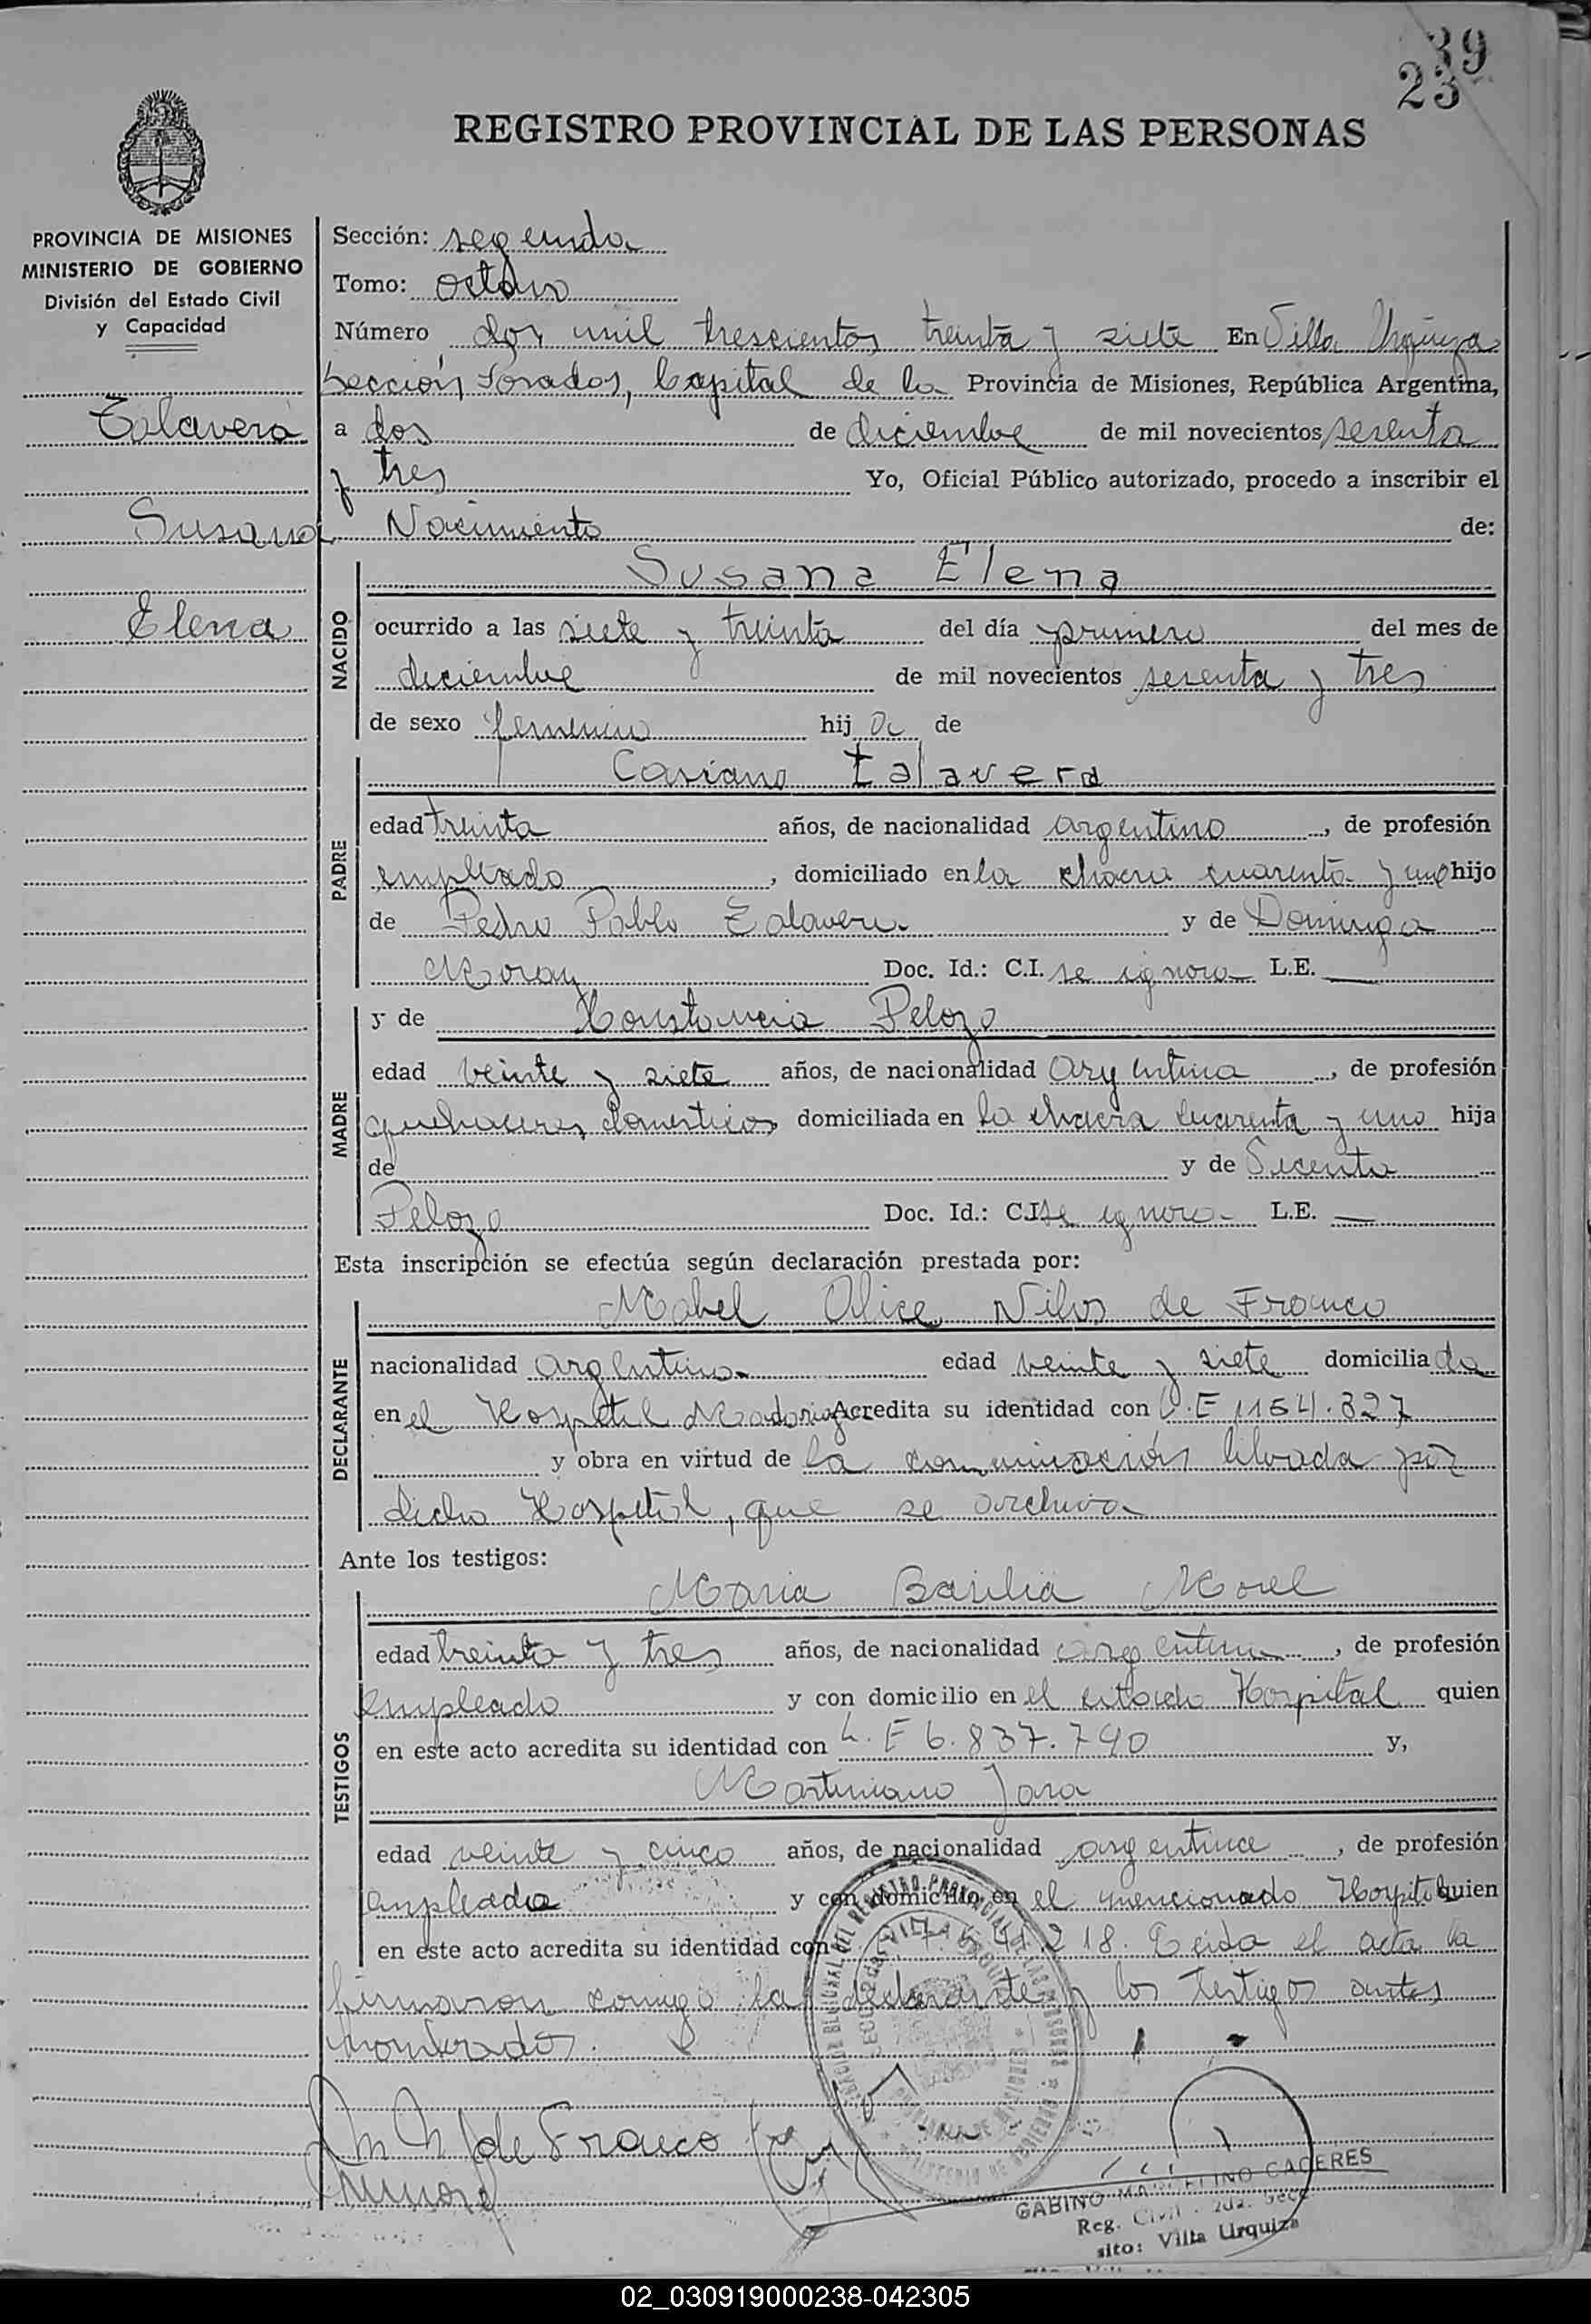 39
23
REGISTRO PROVINCIAL DE LAS PERSONAS
PROVINCIA DE MISIONES
MINISTERIO DE GOBIERNO
División del Estado Civil
y Capacidad
Talavera
Susana
Elena
Sección: segunda
Tomo: octavo
Número dos mil trescientos treinta y siete En Villa Urquiza
Sección Posadas, Capital de la Provincia de Misiones, República Argentina,
a dos de diciembre de mil novecientos sesenta
y tres Yo, Oficial Público autorizado, procedo a inscribir el
Nacimiento de:
NACIDO
Susana Elena
ocurrido a las siete y treinta del día primero del mes de
diciembre de mil novecientos sesenta y tres
de sexo femenino hij a de
PADRE
Casiano Talavera
edad treinta años, de nacionalidad argentino, de profesión
empleado, domiciliado en la chacra cuarenta y uno hijo
de Pedro Pablo Talavera y de Dominga
Doc. Id.: C.I. se ignora L.E. —
MADRE
y de Constancia Pelozo
edad veinte y siete años, de nacionalidad Argentina, de profesión
quehaceres domesticos domiciliada en la chacra cuarenta y uno hija
de y de
Pelozo Doc. Id.: C.I. se ignora L.E. —
Esta inscripción se efectúa según declaración prestada por:
DECLARANTE
Mabel Alice de Franco
nacionalidad argentina edad veinte y siete domicilia da
en el Hospital Madariaga Acredita su identidad con
y obra en virtud de la comunicación librada por
dicho Hospital, que se archiva
Ante los testigos:
TESTIGOS
Maria Basilia Morel
edad treinta y tres años, de nacionalidad argentina, de profesión
empleada y con domicilio en el citado Hospital quien
en este acto acredita su identidad con L.E 6.837.740 y,
Martiniano Jara
edad veinte y cinco años, de nacionalidad argentina, de profesión
empleado y con domicilio en el mencionado Hospital quien
en este acto acredita su identidad con 218. Leida el acta la
firmaron conmigo la declarante y los testigos antes
nombrados.
de Franco
GABINO MARCELINO CACERES
Reg. Civil - 2da. Secc.
sito: Villa Urquiza
02_030919000238-042305